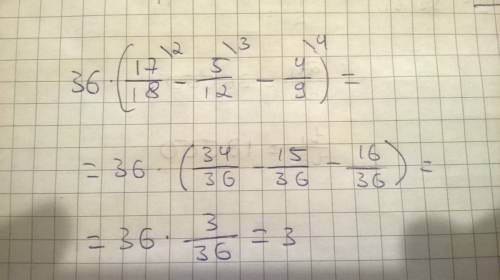 36 · (17/18 \2 - 5/12 \3 - 4/9 \4) =
= 36 · (34/36 - 15/36 - 16/36) =
= 36 · 3/36 = 3